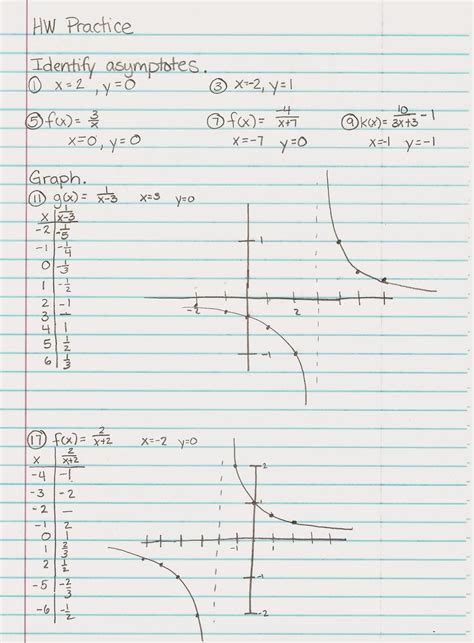 HW Practice
Identify asymptotes.
① x=2, y=0 ③ x=-2, y=1
⑤ f(x)= 3/x ⑦ f(x)= -4/x+7 ⑨ k(x)= 10/3x+3 -1
x=0, y=0 x=-7 y=0 x=-1 y=-1
Graph.
⑪ g(x)= 1/x-3 x=3 y=0
x | 1/x-3
-2 | -1/5
-1 | -1/4
0 | 1/3
1 | -1/2
2 | -1
3 | —
4 | 1
5 | 1/2
6 | 1/3
1
-2 2
-1
⑰ f(x)= 2/x+2 x=-2 y=0
x | 2/x+2
-4 | -1
-3 | -2
-2 | —
-1 | 2
0 | 1
1 | 2/3
2 | 1/2
-5 | -2/3
-6 | -1/2
2
1
-1 1
-1
-2